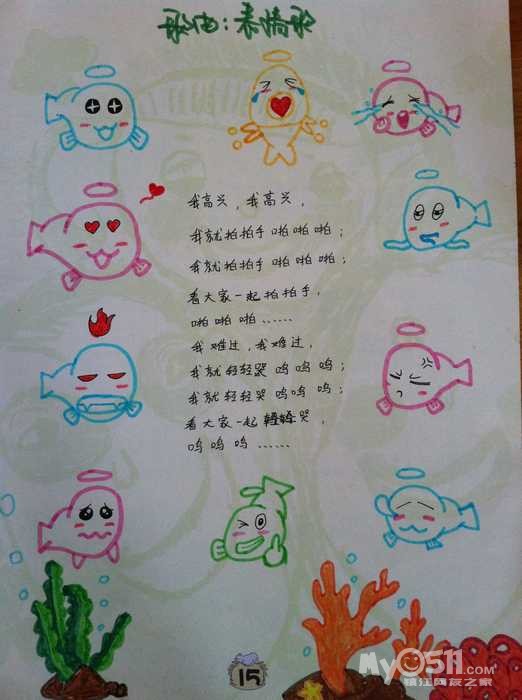 歌曲：表情歌
我高兴，我高兴，
我就拍拍手 啪啪啪；
我就拍拍手 啪啪啪；
看大家一起拍拍手，
啪啪啪……
我难过，我难过，
我就轻轻哭 呜呜呜；
我就轻轻哭 呜呜 呜；
看大家一起轻轻哭，
呜呜呜……
15
My0511.com
镇江网友之家